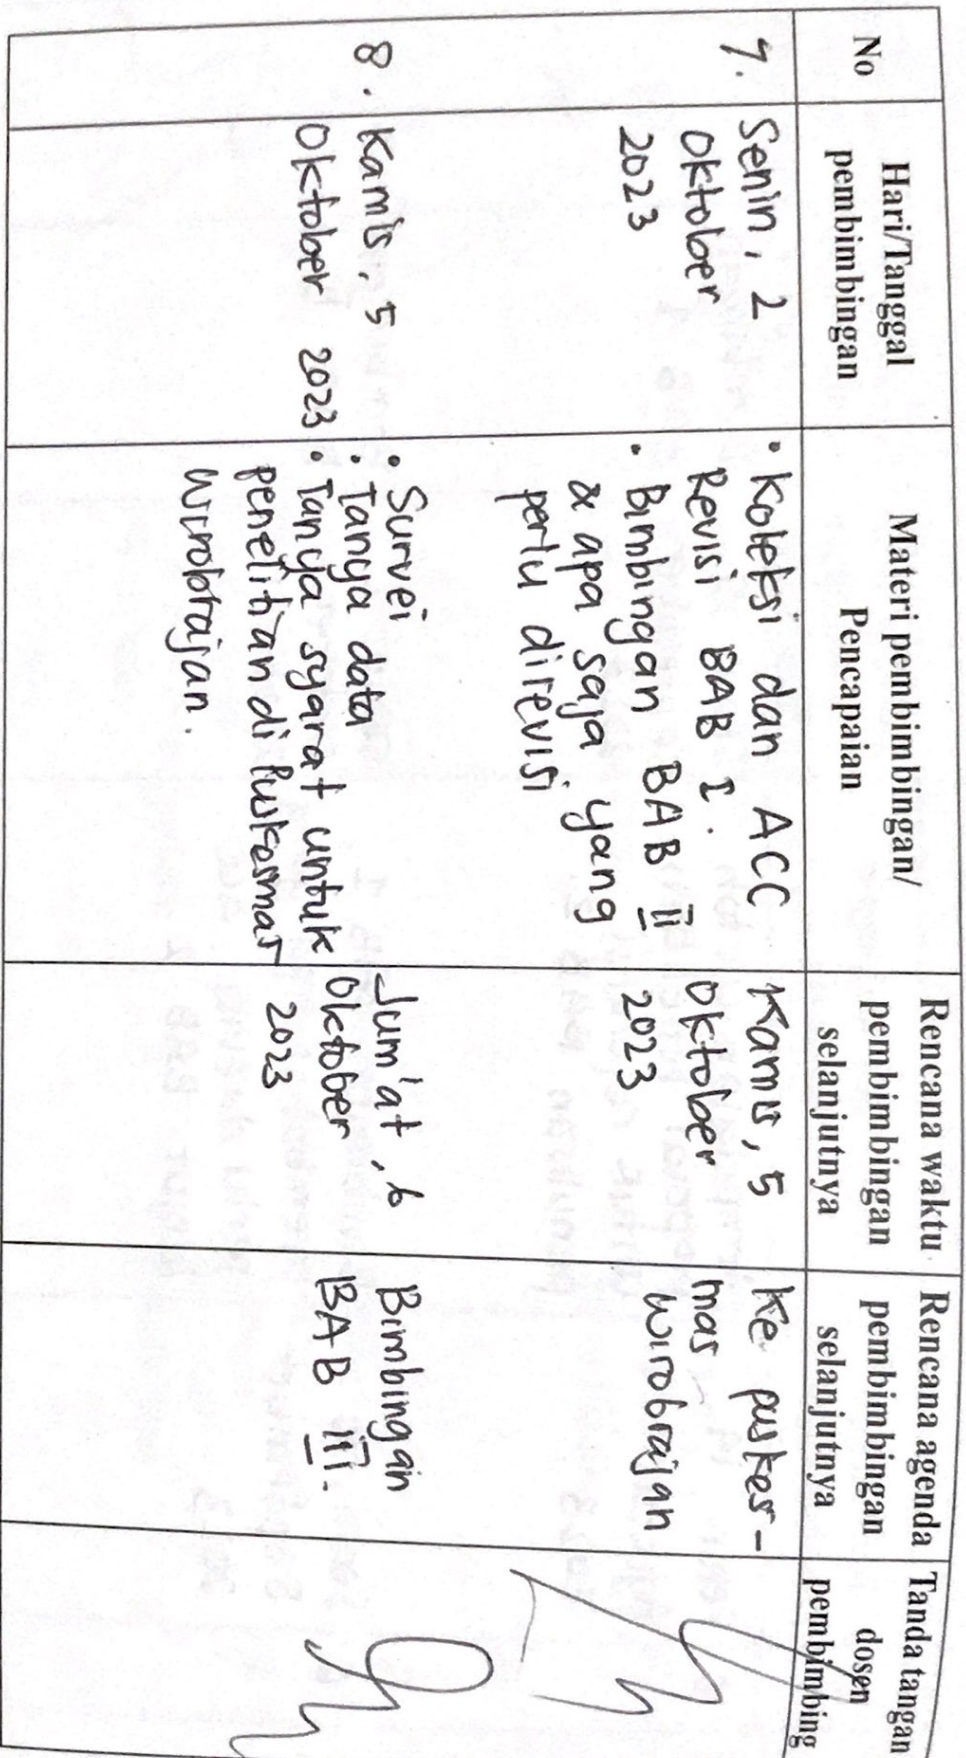 No
Hari/Tanggal
pembimbingan
Materi pembimbingan/
Pencapaian
Rencana waktu
pembimbingan
selanjutnya
Rencana agenda
pembimbingan
selanjutnya
Tanda tangan
dosen
pembimbing
7.
Senin, 2
Oktober
2023
• Koleksi dan ACC
Revisi BAB I.
• Bimbingan BAB II
& apa saja yang
perlu direvisi
Kamis, 5
Oktober
2023
Ke puskes-
mas
wirobrajan
8.
Kamis, 5
Oktober 2023
• Survei
• Tanya data
• Tanya syarat untuk
penelitian di Puskesmas
Wirobrajan.
Jum'at, 6
Oktober
2023
Bimbingan
BAB III.